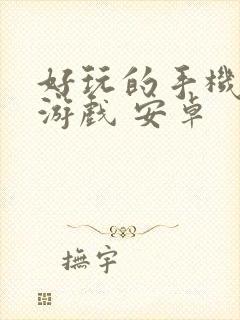 好玩的手機
游戲 安卓
撫宇